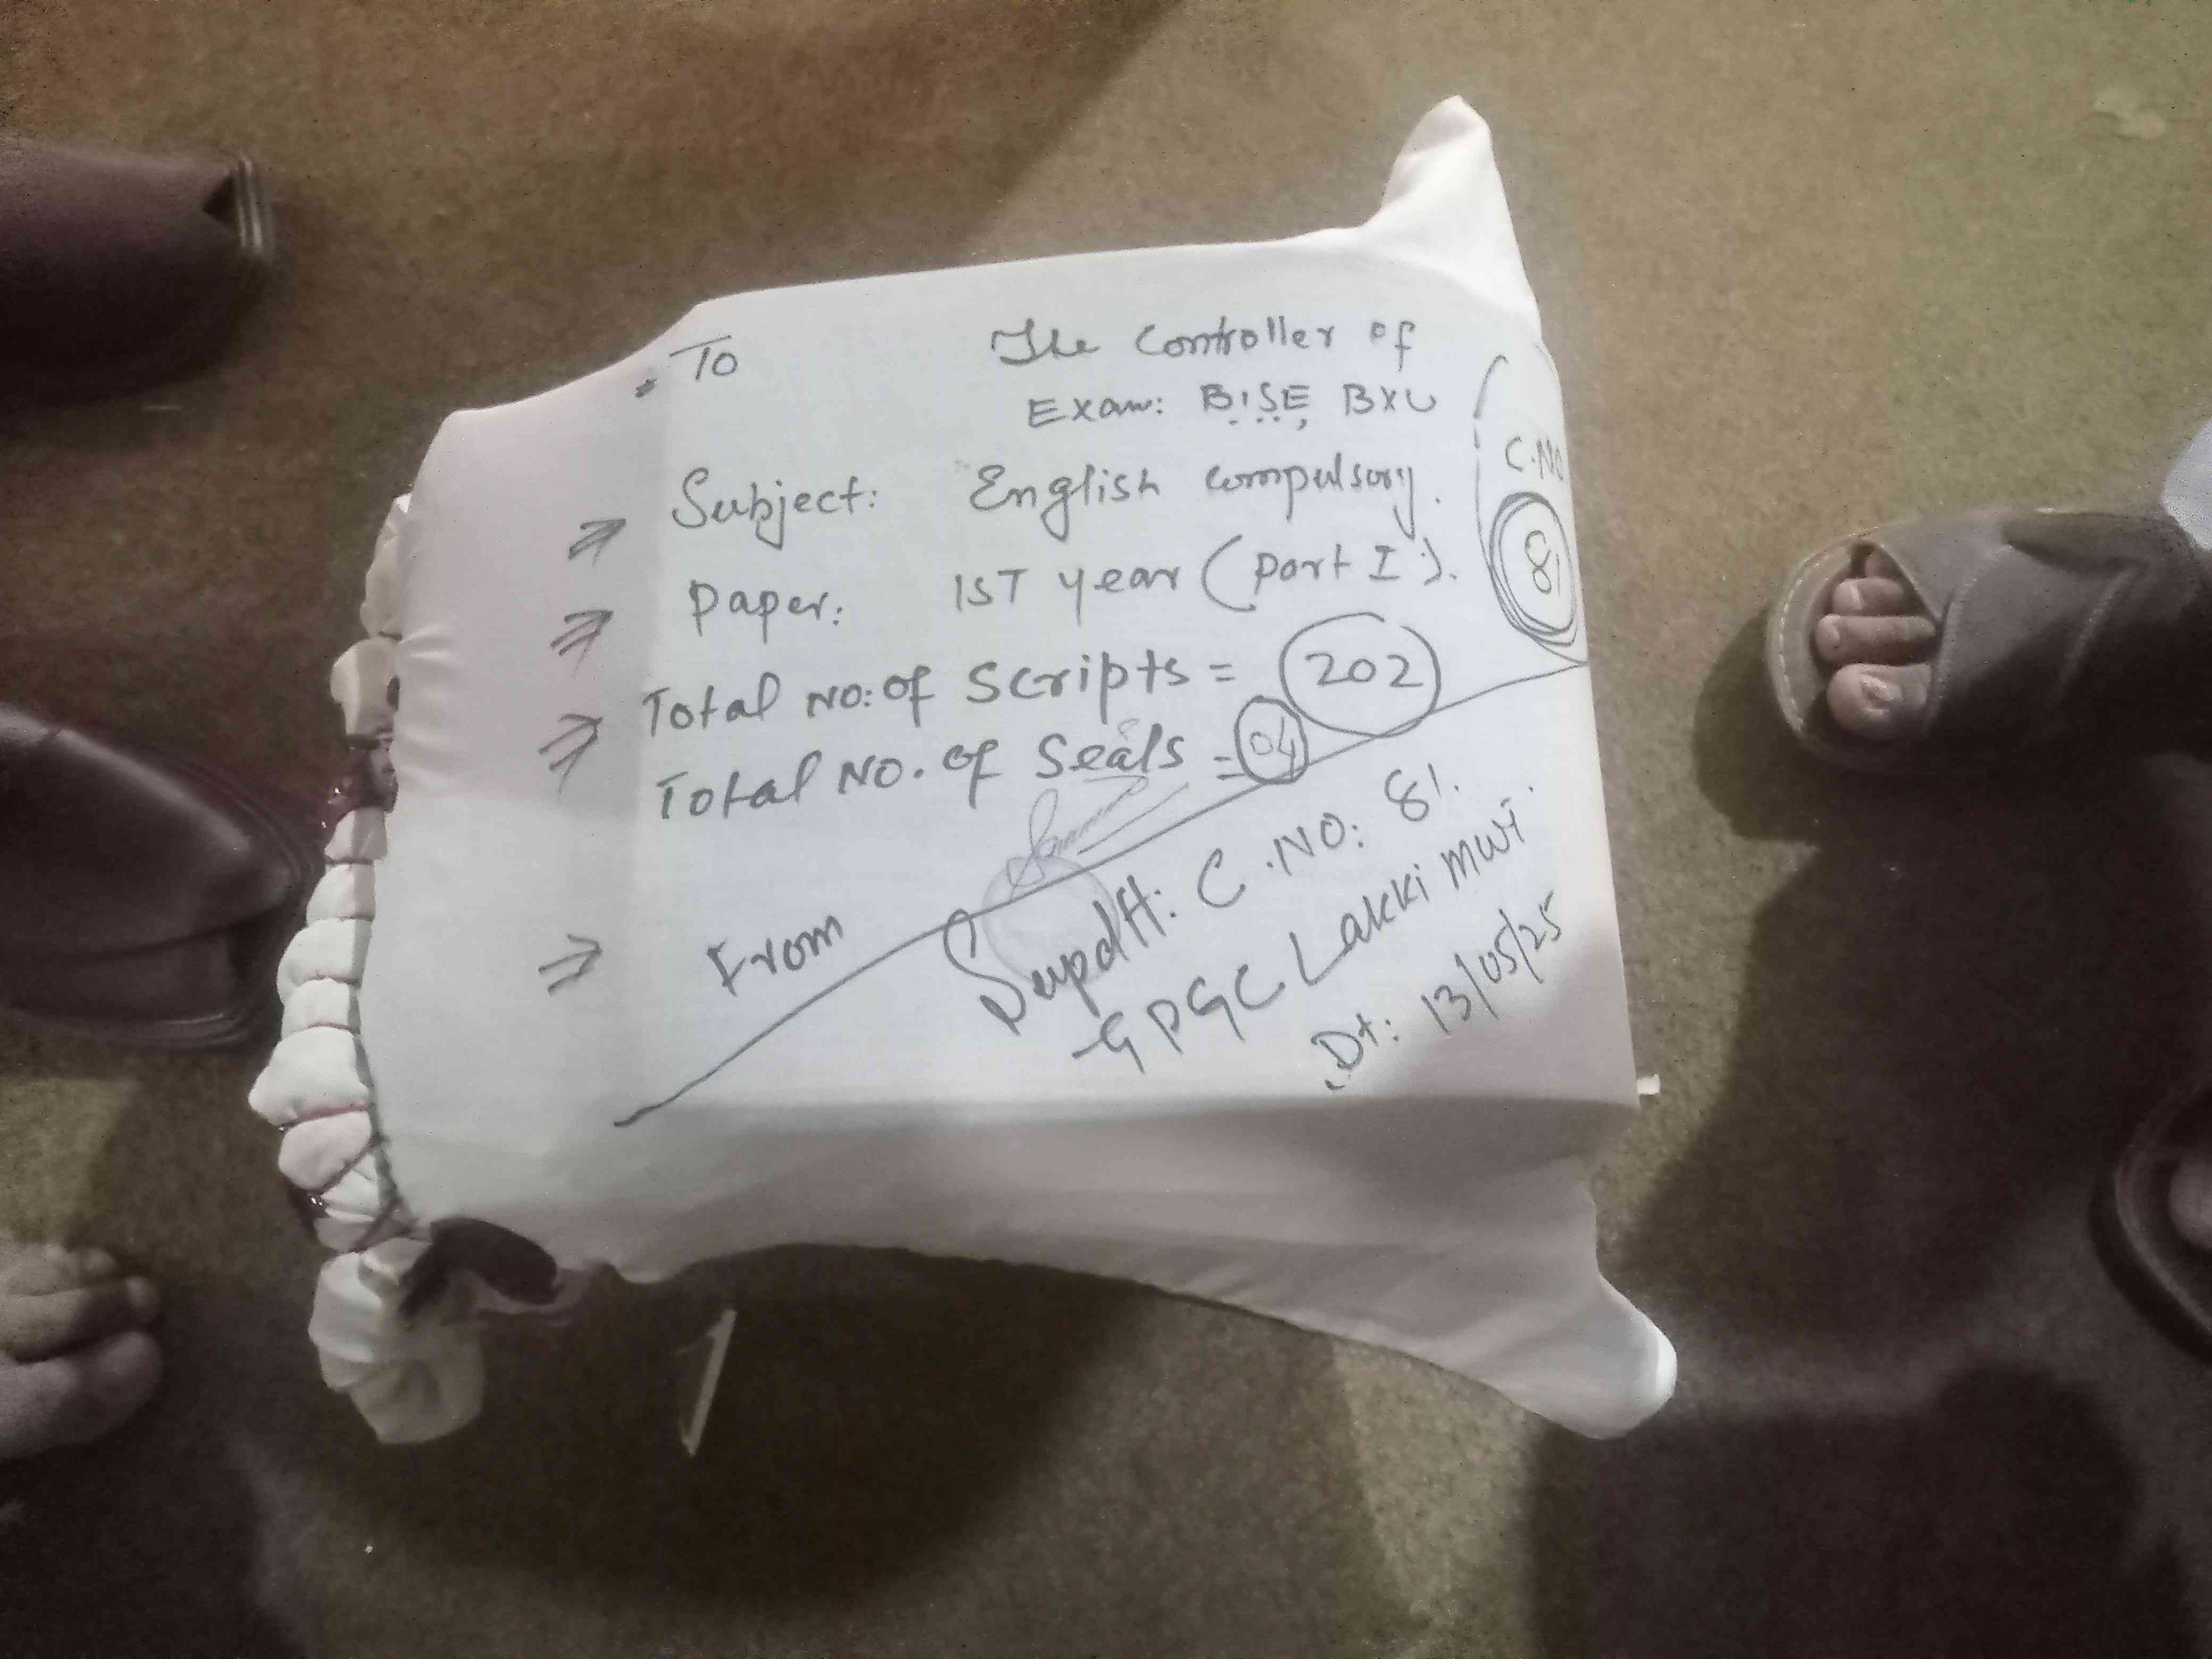 To The Controller of
Exam: BISE, BXU
C.No
81
⇒ Subject: English compulsory.
⇒ Paper: 1ST year (Part I).
⇒ Total No: of Scripts = 202
Total No. of Seals = 04
⇒ From Supdtt: C.NO: 81.
GPGC Lakki Mwt.
Dt: 13/05/25